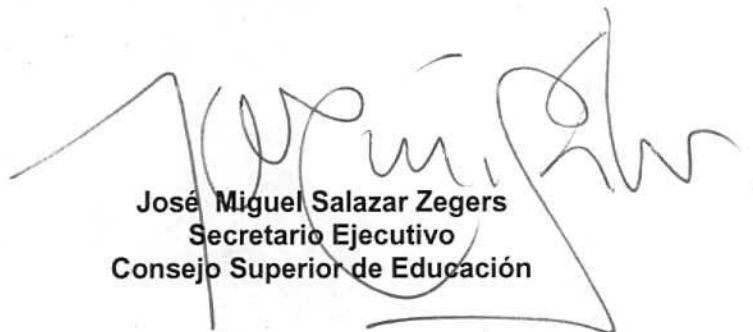 José Miguel Salazar Zegers
Secretario Ejecutivo
Consejo Superior de Educación